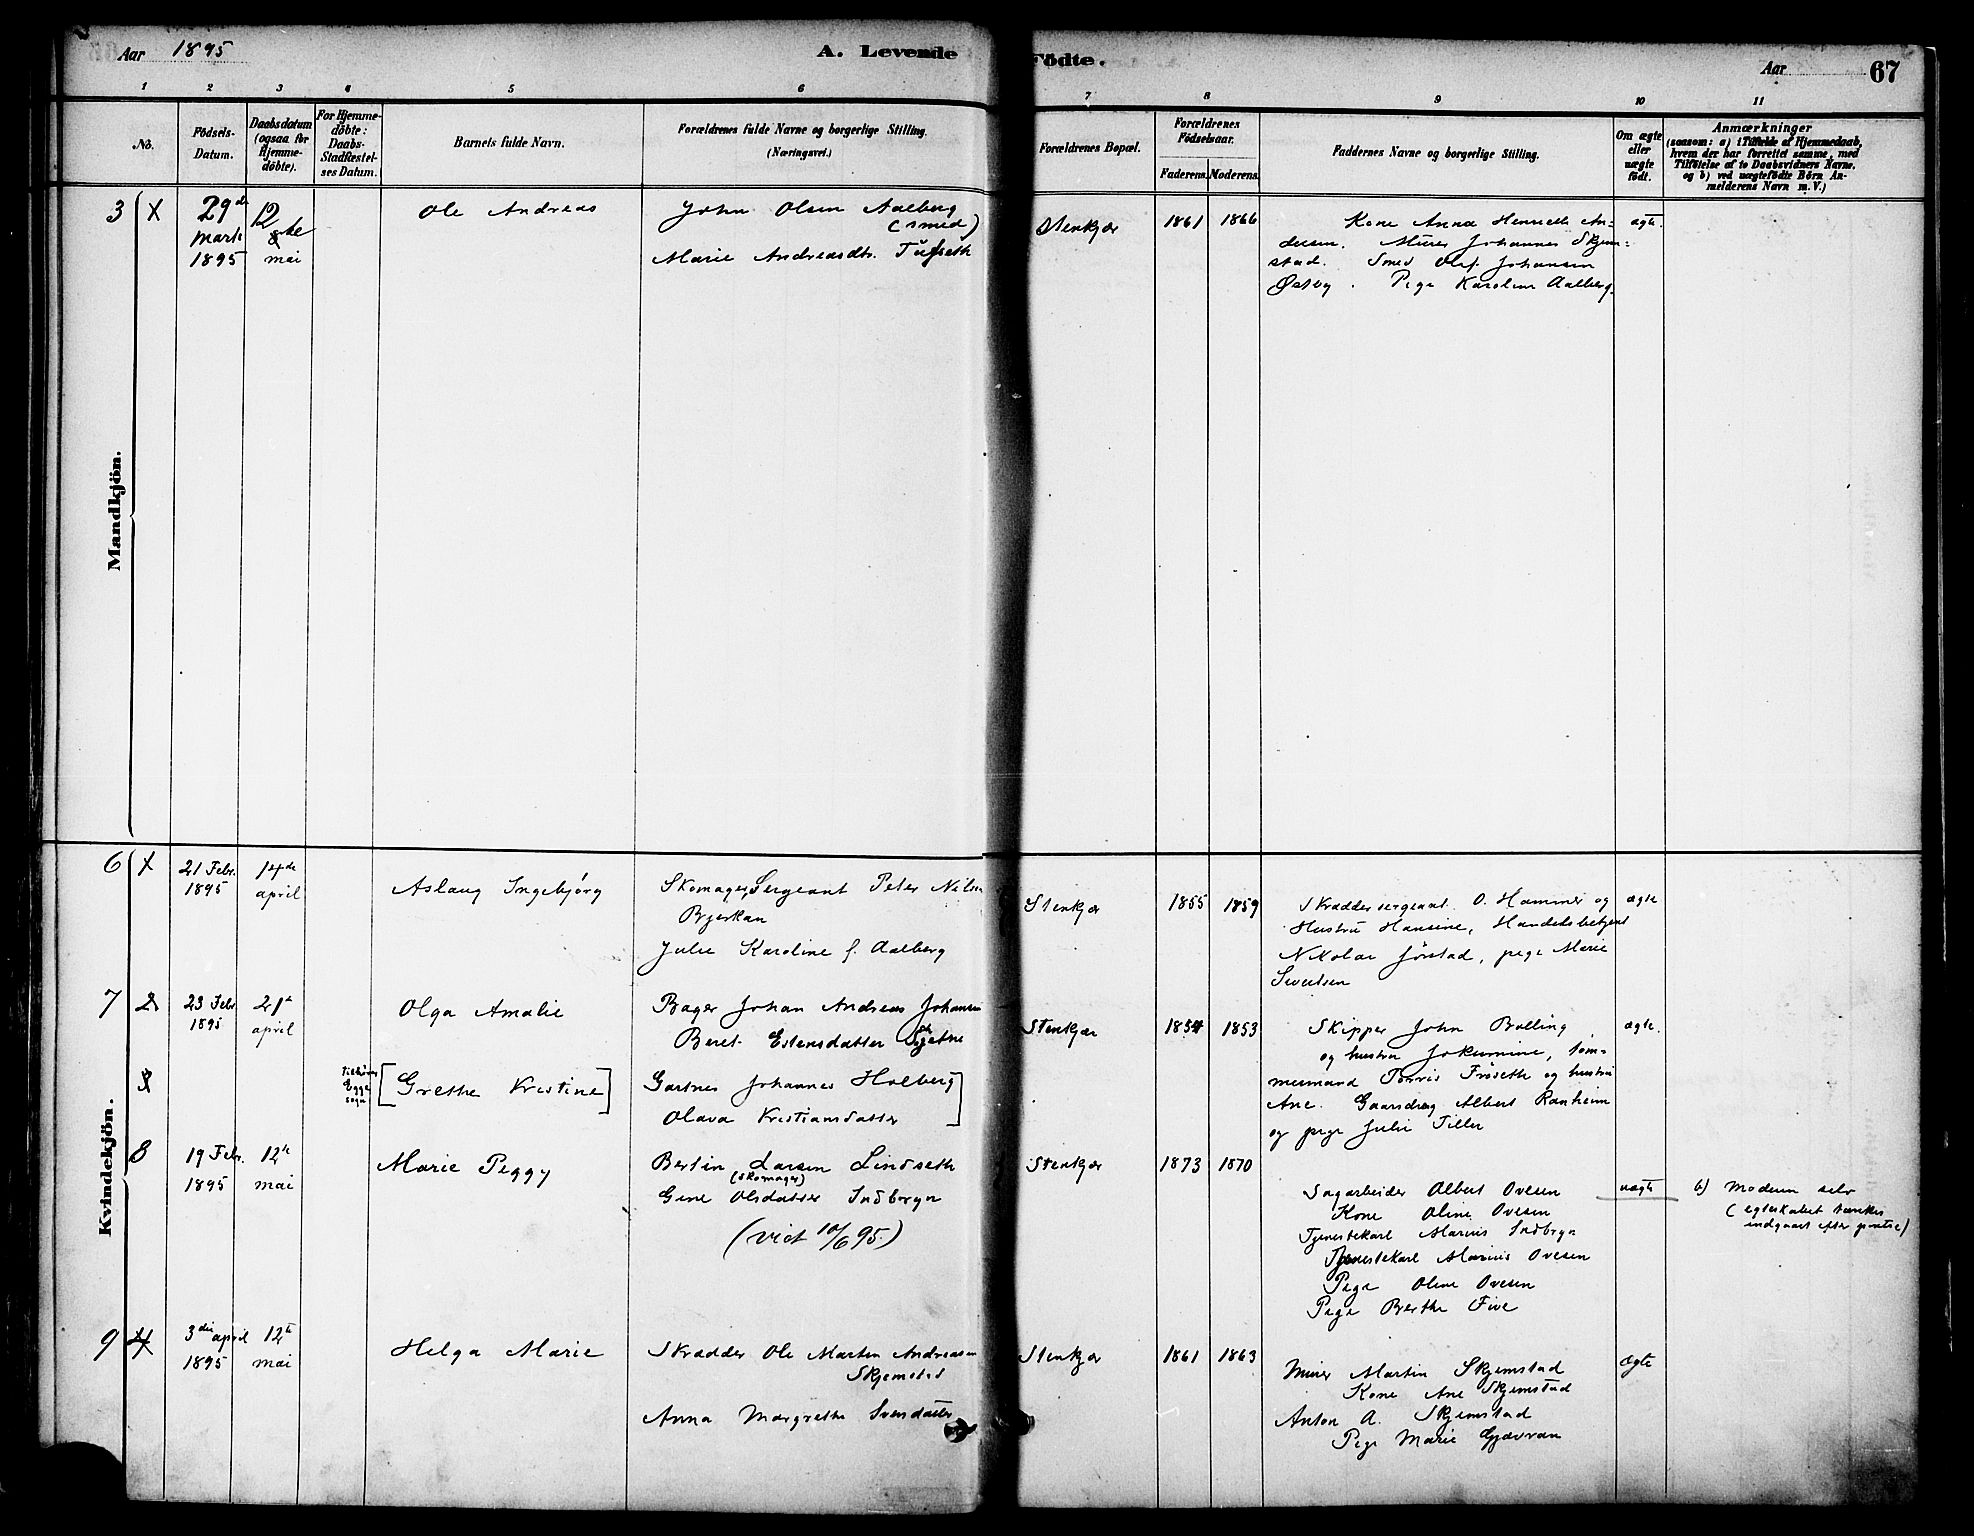 Aar 1895
A. Levende Födte.
Aar 67
1 2 3 4 5 6 7 8 9 10 11
No.
Födsels-
Datum.
Daabsdatum
(ogsaa for
Hjemme-
döbte).
For Hjemme-
döbte:
Daabs-
Stadfæstel-
ses Datum.
Barnets fulde Navn.
Forældrenes fulde Navne og borgerlige Stilling.
(Næringsvei.)
Forældrenes Bopæl.
Forældrenes
Födselsaar.
Faderens. Moderens.
Faddernes Navne og borgerlige Stilling.
Om ægte
eller
uægte
födt.
Anmærkninger
(saasom: a) i Tilfælde af Hjemmedaab,
hvem der har forrettet samme, med
Tilföielse af to Daabsvidners Navne,
og b) ved uægtefödte Börn An-
melderens Navn m. V.)
Mandkjön.
3
29de
Marts
1895
12
mai
Ole Andreas
John Olsen Aalberg
(smed)
Marie Andreasdtr. Tufseth
Stenkjær
1861 1866
Kone Anna Henriette An-
dersen. Murer Johannes Skjem-
stad. Smed Olaf Johansen
Østby. Pige Karoline Aalberg.
ægte.
Kvindekjön.
6
21 Febr.
1895
14de
april
Aslaug Ingebjørg
Skomager, Sergeant Peter Nilsen
Bjerkan
Julie Karoline f. Aalberg
Stenkjær
1855 1859
Skræddersergeant O. Hammer og
Hustru Hansine, Handelsbetjent
Nikolai Jørstad, pige Marie
Sivertsen
ægte
7 2
23 Febr
1895
21
april
Olga Amalie
Bager Johan Andreas Johansen
Beret Estensdatter
Stenkjær
1854 1853
Skipper John Bolling
og hustru Jokumine, töm-
mermand Torris Fröseth og hustru
Ane. Gaardbrug Albert Ranheim
og pige Julie Tiller
ægte.
3
Tilhører
Egge
sogn
[Grethe Kristine]
Gartner Johannes Holberg
Olava Kristiansdatter]
8
19 Febr.
1895
12te
mai
Marie Peggy
Bertin Larsen Lindseth
(skomager)
Gine Olsdatter Indbryn
(viet 10/6 95)
Stenkjær
1873 1870
Sagarbeider Albert Ovesen
Kone Oline Ovesen
Tjenestekarl Marius Indbryn
Tjenestekarl Marius Ovesen
Pige Oline Ovesen
Pige Berthe Five
uægte
b) Moderen selv
(egteskabet tænkes
indgaaet efter pintse)
9 4
3die april
1895
12te
mai
Helga Marie
Skrædder Ole Martin Andreasen
Skjemstad
Anna Margrethe Svendatter
Stenkjær
1861 1863
Murer Martin Skjemstad
Kone Ane Skjemstad
Anton A. Skjemstad
Pige Marie Gjævran
ægte